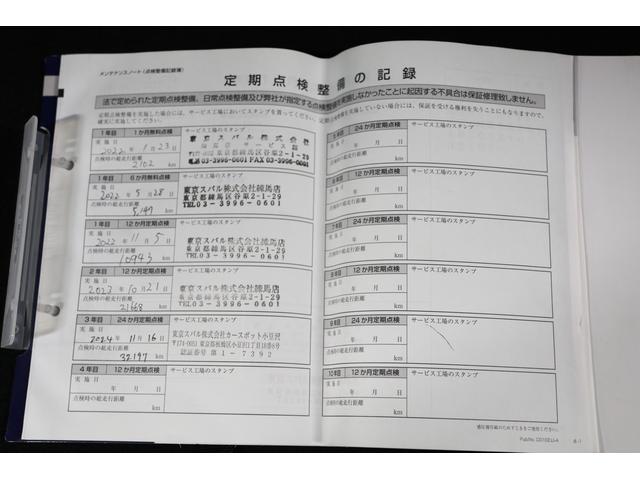 メンテナンスノート（点検整備記録簿）
定期点検整備の記録
法で定められた定期点検整備、日常点検整備及び弊社が指定する点検整備を実施しなかったことに起因する不具合は保証修理致しません。
定期点検整備を実施した場合には、サービス工場においてスタンプを貰ってください。定期点検整備を実施していない場合には、保証を受ける権利を失うことにもなりますので、
確実に実施してください。
1年目 1か月無料点検 サービス工場のスタンプ
実施日
2022年 1月23日
点検時の総走行距離
2102 km
東京スバル株式会社
東京都練馬区谷原2-1-29
TEL03-3996-0601 FAX 03-3996-0601
1年目 6か月無料点検 サービス工場のスタンプ
実施日
2022年 5月28日
点検時の総走行距離
5,147 km
東京スバル株式会社練馬店
東京都練馬区谷原2-1-29
TEL03-3996-0601
1年目 12か月定期点検 サービス工場のスタンプ
実施日
2022年 11月 5日
点検時の総走行距離
10943 km
東京スバル株式会社練馬店
東京都練馬区谷原2-1-29
TEL03-3996-0601
2年目 12か月定期点検 サービス工場のスタンプ
実施日
2023年 10月21日
点検時の総走行距離
21668 km
東京スバル株式会社練馬店
東京都練馬区谷原2-1-29
TEL03-3996-0601
3年目 24か月定期点検 サービス工場のスタンプ
実施日
2024年 11月16日
点検時の総走行距離
32197 km
東京スバル株式会社カースポット小豆沢
認証番号 第1-7392
4年目 12か月定期点検 サービス工場のスタンプ
実施日
年 月 日
点検時の総走行距離
km
5年目 24か月定期点検 サービス工場のスタンプ
実施日
年 月 日
点検時の総走行距離
km
6年目 12か月定期点検 サービス工場のスタンプ
実施日
年 月 日
点検時の総走行距離
km
7年目 24か月定期点検 サービス工場のスタンプ
実施日
年 月 日
点検時の総走行距離
km
8年目 12か月定期点検 サービス工場のスタンプ
実施日
年 月 日
点検時の総走行距離
km
9年目 24か月定期点検 サービス工場のスタンプ
実施日
年 月 日
点検時の総走行距離
km
10年目 12か月定期点検 サービス工場のスタンプ
実施日
年 月 日
点検時の総走行距離
km